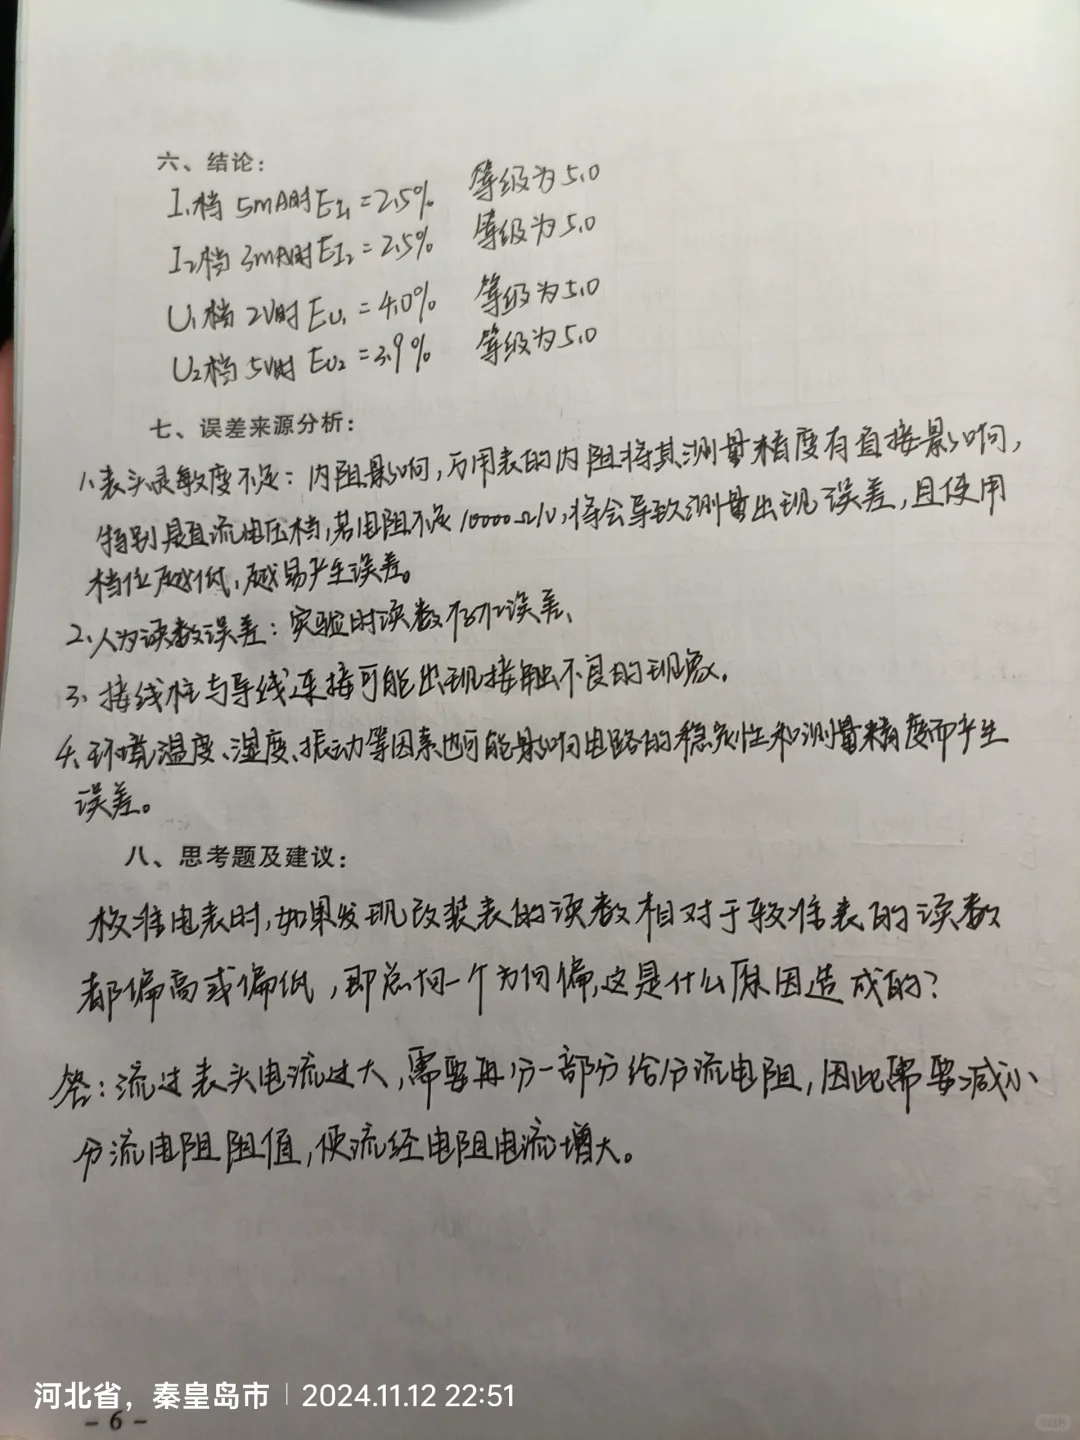 六、结论：
I₁档 5mA时 EI₁ = 2.5% 等级为5.0
I₂档 3mA时 EI₂ = 2.5% 等级为5.0
U₁档 2V时 EU₁ = 4.0% 等级为5.0
U₂档 5V时 EU₂ = 3.9% 等级为5.0
七、误差来源分析：
1、表头灵敏度不足：内阻影响，万用表的内阻将其测量精度有直接影响，
特别是直流电压档，若电阻不足10000Ω/V，将会导致测量出现误差，且使用
档位越低，越易产生误差。
2、人为读数误差：实验时读数存在误差、
3、接线柱与导线连接可能出现接触不良的现象.
4、环境温度、湿度、振动等因素也可能影响电路的稳定性和测量精度而产生
误差。
八、思考题及建议：
校准电表时，如果发现改装表的读数相对于较准表的读数
都偏高或偏低，即总向一个方向偏，这是什么原因造成的？
答：流过表头电流过大，需要再分一部分给分流电阻，因此需要减小
分流电阻阻值，使流经电阻电流增大。
河北省，秦皇岛市 | 2024.11.12 22:51
- 6 -